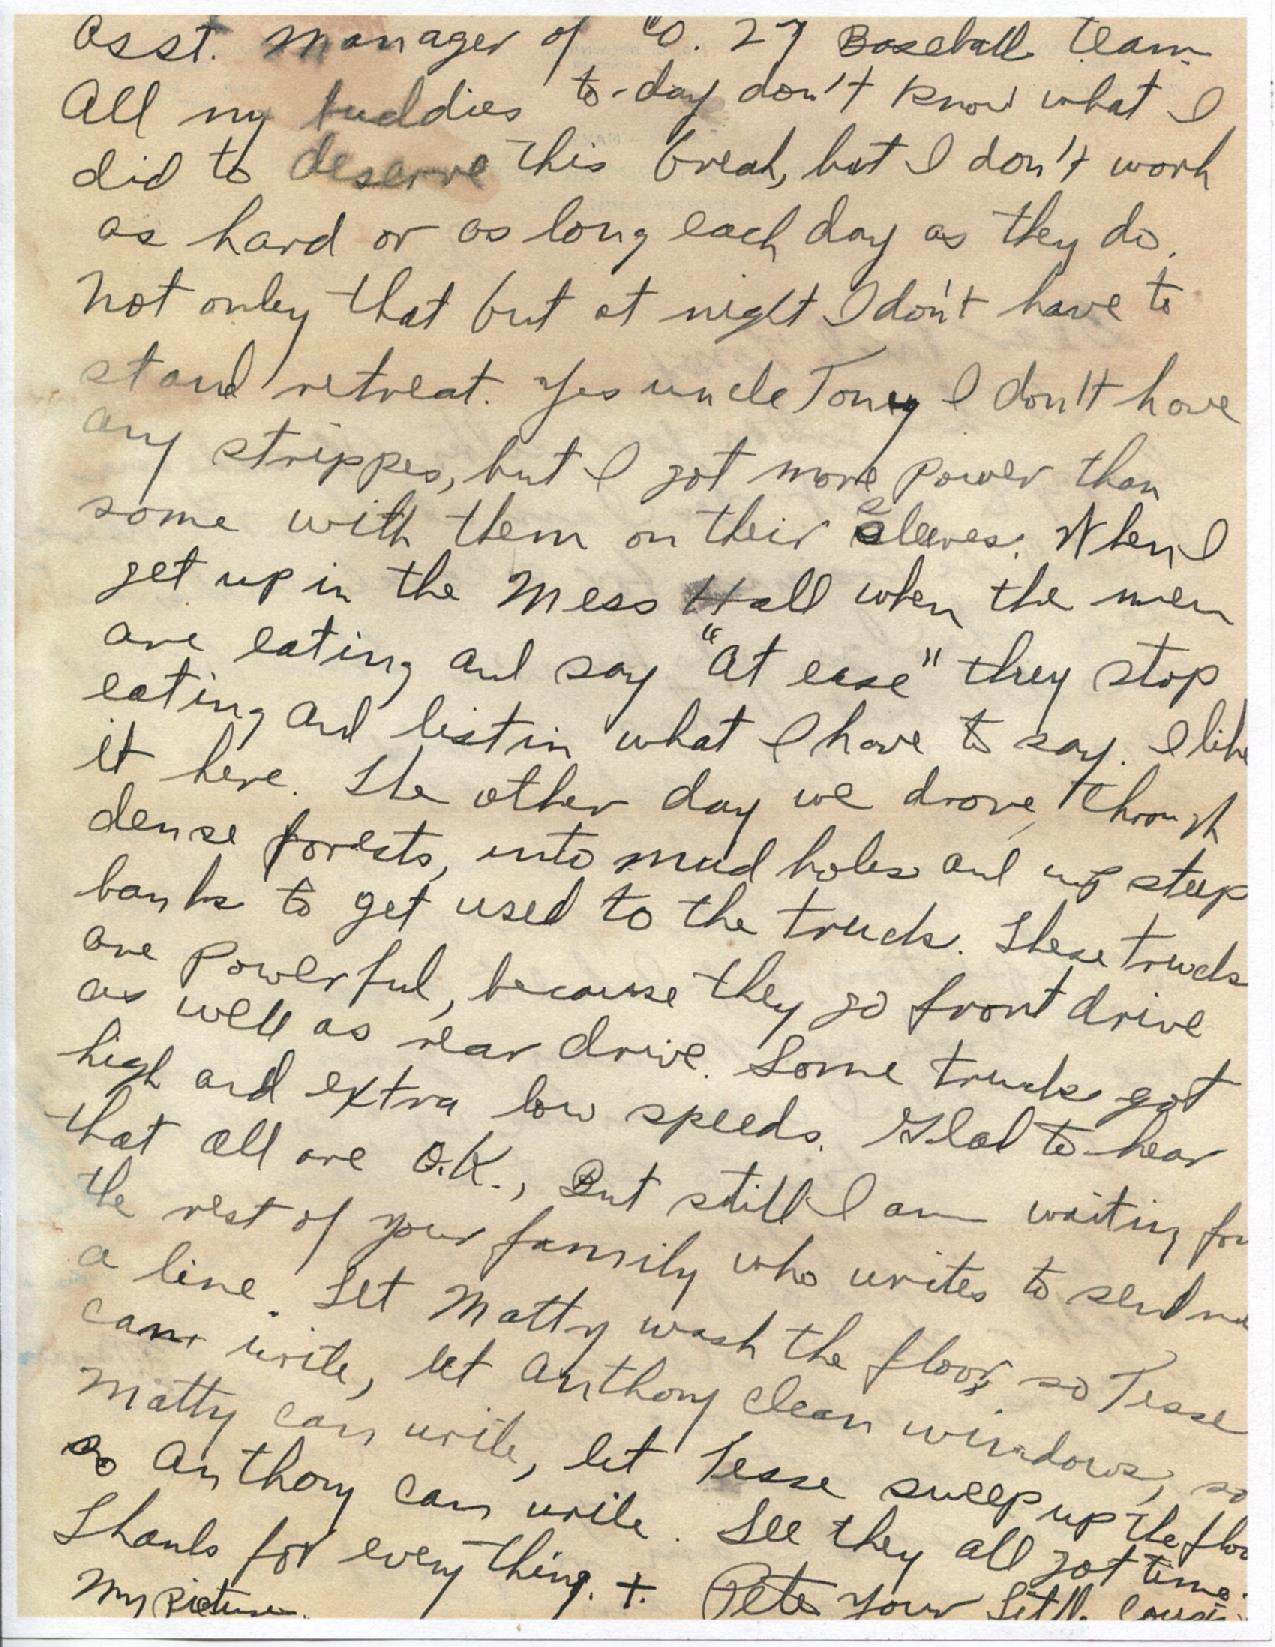 asst. manager of Co. 27 Baseball team
All my buddies to-day don't know what I
did to deserve this break, but I don't work
as hard or as long each day as they do.
Not only that but at night I don't have to
stand retreat. Yes uncle Tony I don't have
any strippes, but I got more power than
some with them on their sleeves. When I
get up in the Mess Hall when the men
are eating and say "at ease" they stop
eating and listin what I have to say. I like
it here. The other day we drove through
dense forests, into mud holes and up steep
banks to get used to the truck. These trucks
are powerful, because they go front drive
as well as rear drive. Some trucks got
high and extra low speeds. Glad to hear
that all are O.K., But still I am waiting for
the rest of your family who writes to send me
a line. Let Matty wash the floor, so Tesse
can write, let Anthony clean windows, so
Matty can write, let Tesse sweep up the floor
so Anthony can write. See they all got time.
Thanks for everything. +
My picture. Pete your Little Cousin